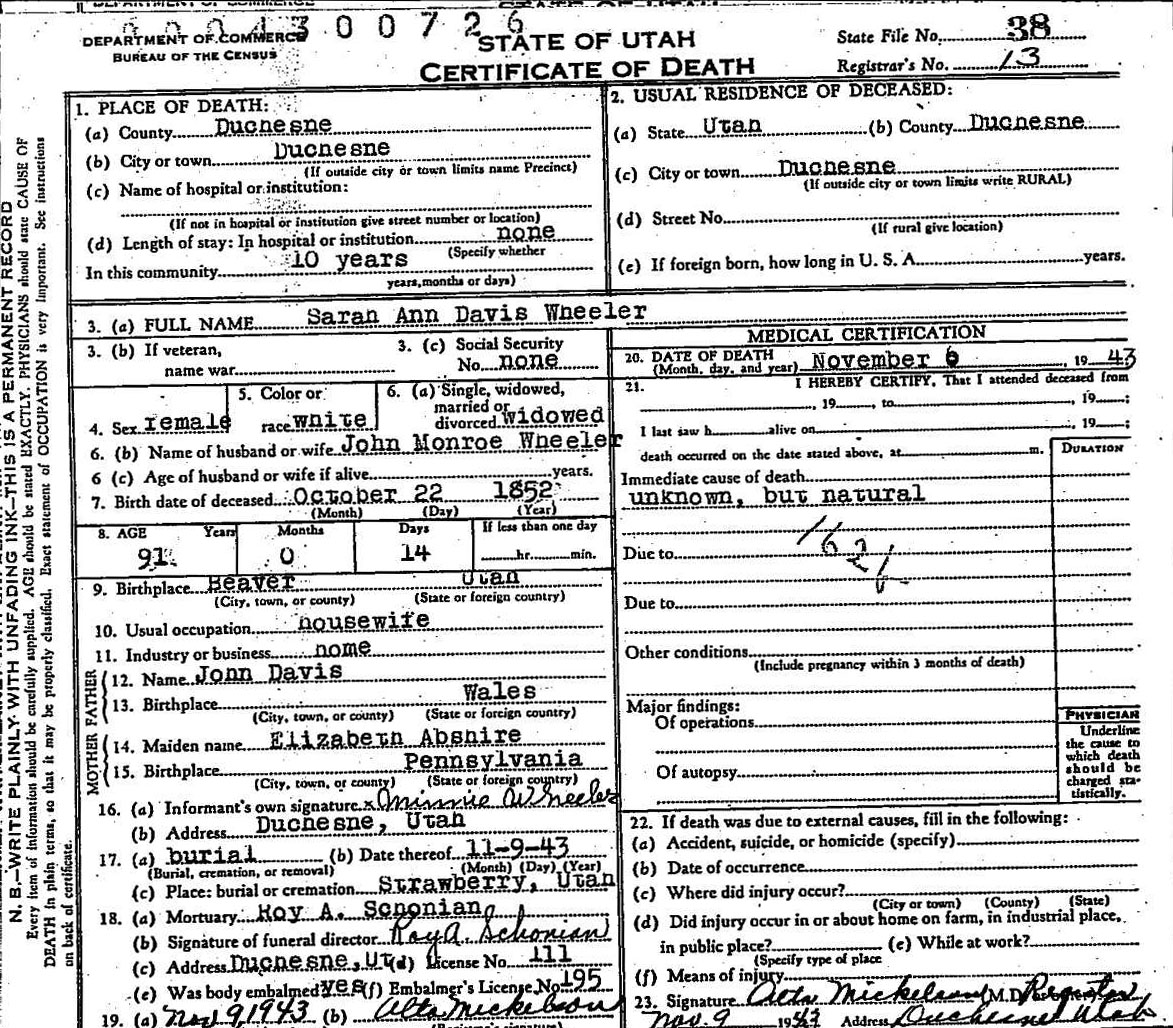 004300726
DEPARTMENT OF COMMERCE
BUREAU OF THE CENSUS
STATE OF UTAH
CERTIFICATE OF DEATH
State File No. 38
Registrar's No. 13
1. PLACE OF DEATH:
(a) County Duchesne
(b) City or town Duchesne
(If outside city or town limits name Precinct)
(c) Name of hospital or institution:
(If not in hospital or institution give street number or location)
(d) Length of stay: In hospital or institution none
(Specify whether
In this community 10 years
years, months or days)
2. USUAL RESIDENCE OF DECEASED:
(a) State Utah (b) County Duchesne
(c) City or town Duchesne
(If outside city or town limits write RURAL)
(d) Street No.
(If rural give location)
(e) If foreign born, how long in U. S. A. years.
3. (a) FULL NAME Sarah Ann Davis Wheeler
3. (b) If veteran, name war
3. (c) Social Security No. none
4. Sex female
5. Color or race white
6. (a) Single, widowed, married or divorced widowed
6. (b) Name of husband or wife John Monroe Wheeler
6 (c) Age of husband or wife if alive years.
7. Birth date of deceased October 22 1852
(Month) (Day) (Year)
8. AGE Years Months Days If less than one day
91 0 14 hr. min.
9. Birthplace Beaver Utah
(City, town, or county) (State or foreign country)
10. Usual occupation housewife
11. Industry or business home
FATHER
12. Name John Davis
13. Birthplace Wales
(City, town, or county) (State or foreign country)
MOTHER
14. Maiden name Elizabeth Abshire
15. Birthplace Pennsylvania
(City, town, or county) (State or foreign country)
16. (a) Informant's own signature x Minnie Wheeler
(b) Address Duchesne, Utah
17. (a) burial (b) Date thereof 11-9-43
(Burial, cremation, or removal) (Month) (Day) (Year)
(c) Place: burial or cremation Strawberry, Utah
18. (a) Mortuary Roy A. Schonian
(b) Signature of funeral director Roy A. Schonian
(c) Address Duchesne, Ut (d) License No. 111
(e) Was body embalmed yes (f) Embalmer's License No 195
19. (a) Nov 9, 1943 (b) Alta Mickelson
MEDICAL CERTIFICATION
20. DATE OF DEATH (Month, day, and year) November 6, 1943
21. I HEREBY CERTIFY, That I attended deceased from
, 19 , to , 19 ;
I last saw h alive on , 19 ;
death occurred on the date stated above, at m.
DURATION
Immediate cause of death
unknown, but natural
162
Due to
Due to
Other conditions
(Include pregnancy within 3 months of death)
Major findings:
Of operations
Of autopsy
PHYSICIAN
Underline
the cause to
which death
should be
charged sta-
tistically.
22. If death was due to external causes, fill in the following:
(a) Accident, suicide, or homicide (specify)
(b) Date of occurrence
(c) Where did injury occur?
(City or town) (County) (State)
(d) Did injury occur in or about home on farm, in industrial place,
in public place? (e) While at work?
(Specify type of place
(f) Means of injury
23. Signature Alta Mickelson (M.D. Registrar
Nov. 9 1943 Address Duchesne Utah
N. B.—WRITE PLAINLY WITH UNFADING INK—THIS IS A PERMANENT RECORD
Every item of information should be carefully supplied. AGE should be stated EXACTLY. PHYSICIANS should state CAUSE OF
DEATH in plain terms, so that it may be properly classified. Exact statement of OCCUPATION is very important. See instructions
on back of certificate.